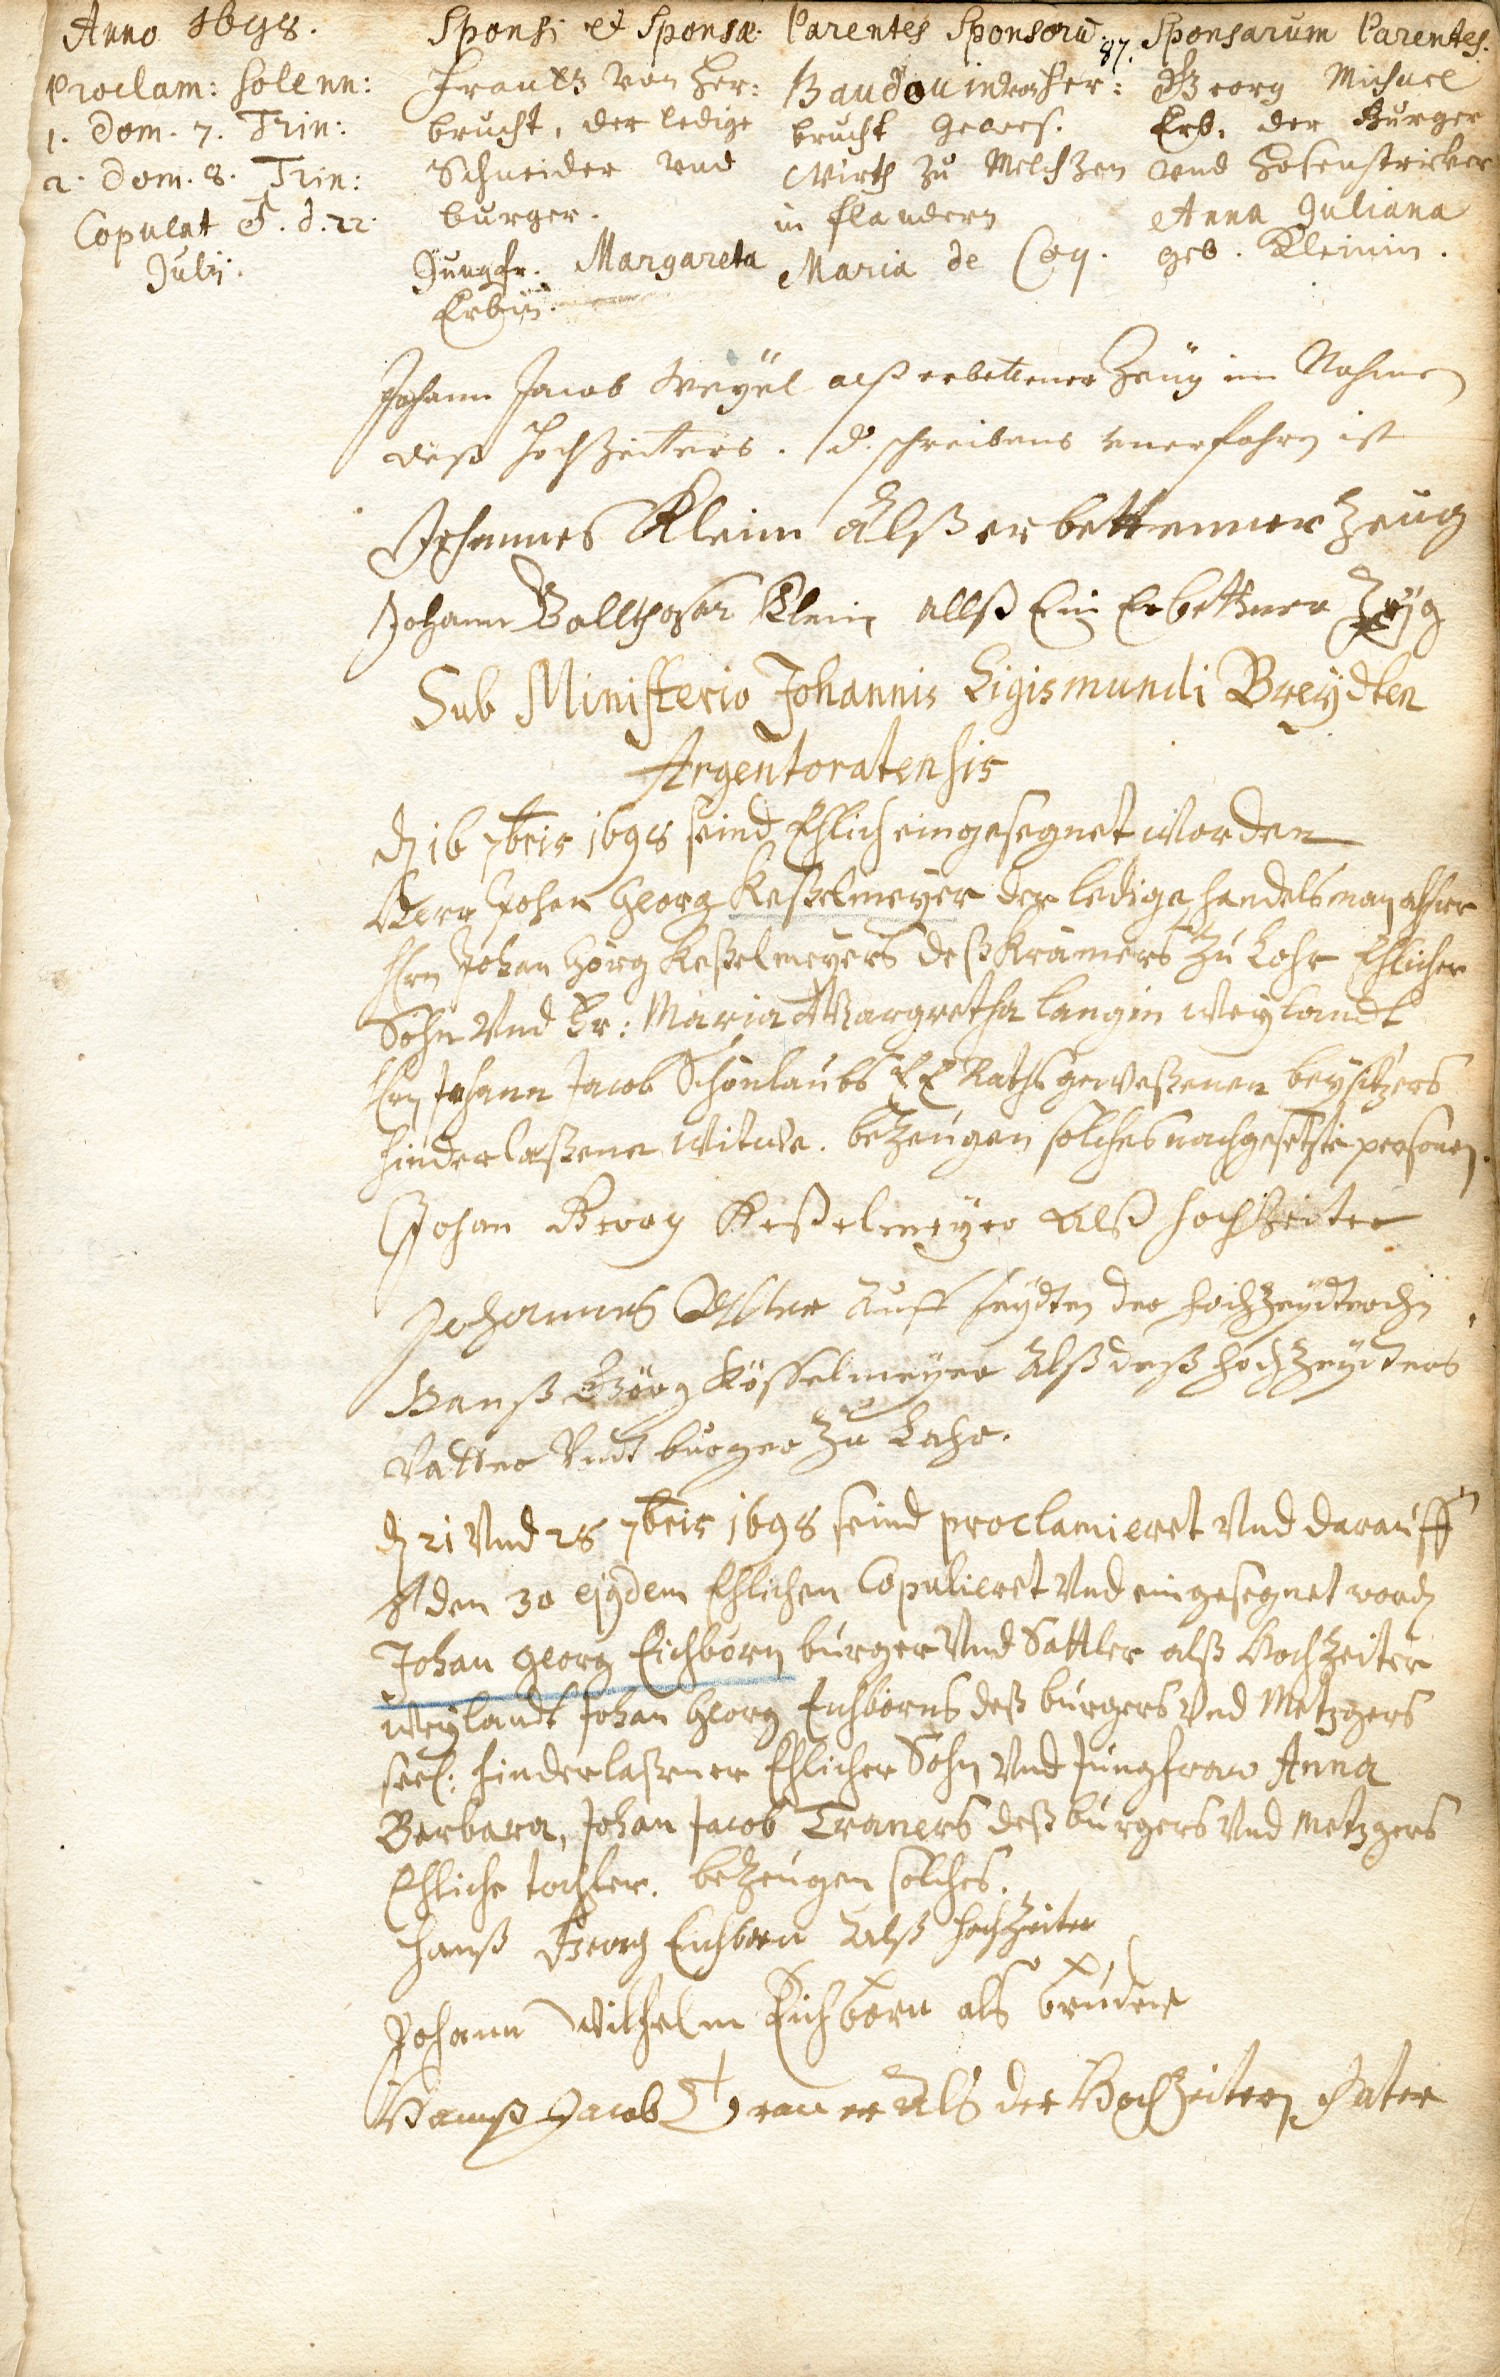 Anno 1698.
Proclam: solenn:
1. Dom. 7. Trin:
2. Dom. 8. Trin:
Copulat d. 22
Julij.
Sponsi et Sponsæ.
Frantz von Her:
brucht, der ledige
Schneider und
burger.
Jungfr. Margareta
Erbin.
Parentes Sponsorū.
87.
Baudouin von Her:
brucht gewes.
Wirth zu Melchzen
in flandern
Maria de Coq.
Sponsarum Parentes.
Georg Michael
Erb, der Burger
und Hosenstricker
Anna Juliana
geb. Kleinin.
Johann Jacob Weyel alß erbettener Zeug im Nahmen
deß Hochzeitters. d. schreibens unerfahrn ist
Johannes Klein Alß erbettenner Zeug
Johann Balthasar Klein allß Ein Erbettner Zeyg
Sub Ministerio Johannis Sigismundi Breydten
Argentoratensis
d 16 7bris 1698 seind Ehlich eingesegnet worden
Herr Johan Georg Keßelmeyer der ledige handelsman alhier
Hrn Johan Görg Keßelmeyers deß Krämers zu Lohr Ehlicher
Sohn Und Fr: Maria Margretha Langin Weylandt
Hrn Johann Jacob Schönlaubs E E Raths geweßenen beysitzers
hinderlaßene witwe. bezeugen solches nachgesetzte personen.
Johan Georg Keßelmeyer Alß Hochzeiter
Johannes auff seydten der Hochzeydterin
Hanß Görg Kösselmeyer Alß deß Hochzeydters
Vatter Undt burger zu Lahr.
d 21 Und 28 7bris 1698 seind proclamieret Und darauff
den 30 ejusdem Ehlichen Copulieret Und eingesegnet word
Johan Georg Eichborn burger Und Sattler alß Hochzeiter
Weylandt Johan Georg Eichborns deß burgers Und Metzgers
seel: hinderlaßener Ehlicher Sohn Und Jungfraw Anna
Barbara, Johan Jacob Traners deß burgers Und Metzgers
Ehliche tochter. bezeugen solches.
Hanß Georg Eichborn Alß Hochzeiter
Johann Wilhelm Eichborn als bruder
Hanß Jacob Traner Als der Hochzeitern Vater